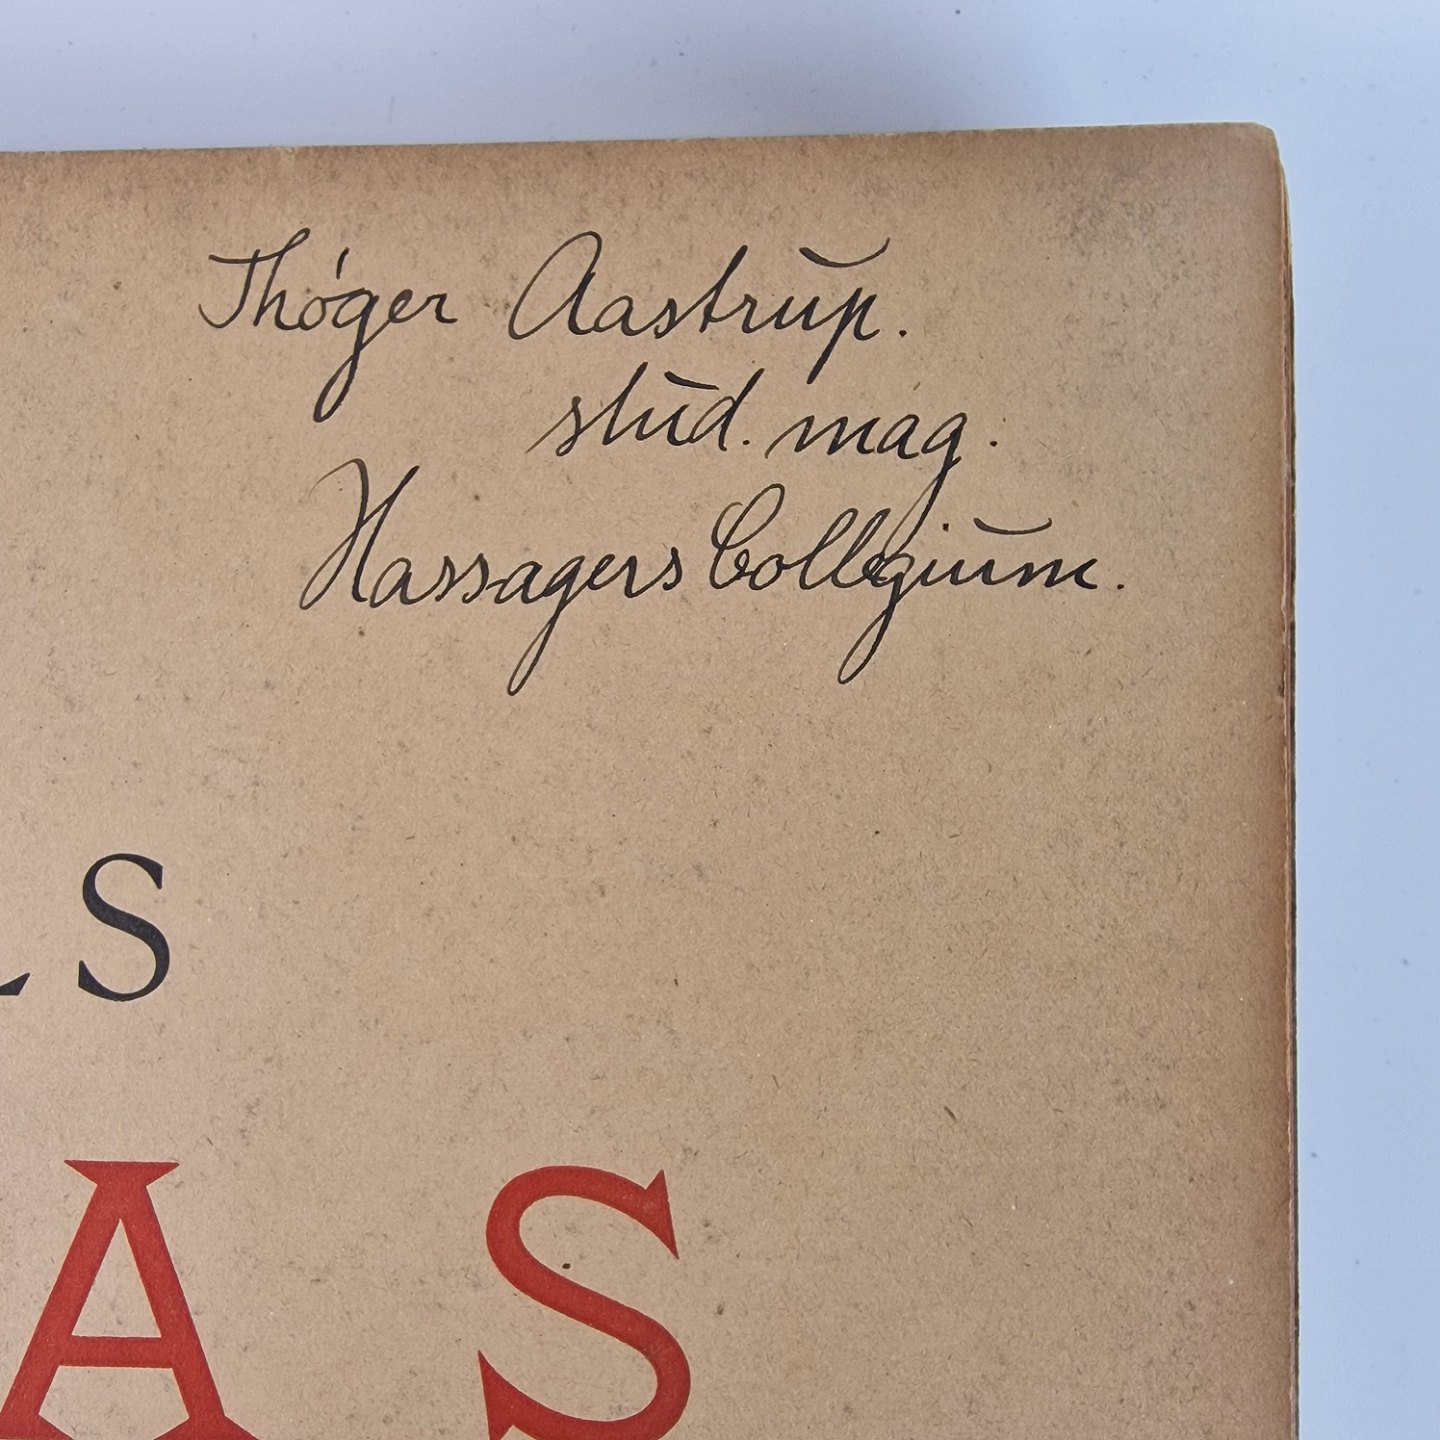 Thøger Aastrup.
stud. mag.
Hassagers Collegium.
LS
AS